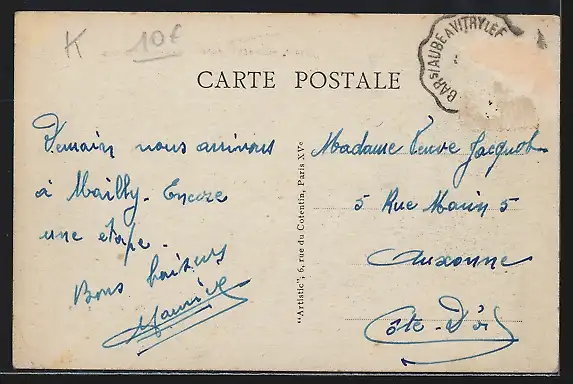 K 10€
CARTE POSTALE
BAR S/AUBE A VITRY LE F
Demain nous arrivons
à Mailly. Encore
une étape.
Bons baisers
Maurice
"Artistic", 6, rue du Cotentin, Paris XVe
Madame Veuve Jacquot
5 Rue Marin 5
Auxonne
Côte-D'or